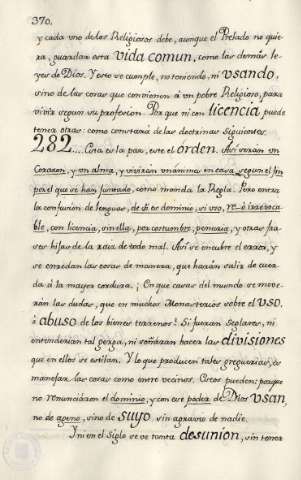 370.
y cada uno de los Religiosos debe, aunque el Prelado no quie
ra, guardar esta vida comun, como las demás le
yes de Dios. Y esto se cumple, no teniendo, ni usando,
sino de las cosas que convienen á un pobre Religioso, para
vivir segun su profesion. Por que ni con licencia puede
tener otras: como constará de las doctrinas siguientes.
282.... Esta es la paz, este el orden. Asi seran un
Corazon, y un alma, y vivirán unánimes en casa, segun el fin
por el que se han juntado, como manda la Regla. Pero entra
la confusion de lenguas, de si es dominio, si uso, revocable
ble, con licencia, sin ella, por costumbre, penuria, y otras fra
ses hijas de la raiz de todo mal. Asi se encubre el error, y
se enredan las cosas de manera, que harán salir de cuer
da á la mayor cordura. ¿En que casas del mundo se move
rán las dudas, que en muchos Monasterios sobre el uso,
ó abuso de los bienes terrenos? Si fueran Seglares, ni
entenderian tal gerga, ni soñaran hacer las divisiones
que en ellos se estilan. Y lo que producen tales greguerias, es
manejar las cosas como entre vecinos. Estos pueden; porque
no renunciaron el dominio, y con ese poder de Dios usan,
no de ageno, sino de suyo, sin agravio de nadie.
Y ni en el Siglo se ve tanta desunion, sin tener